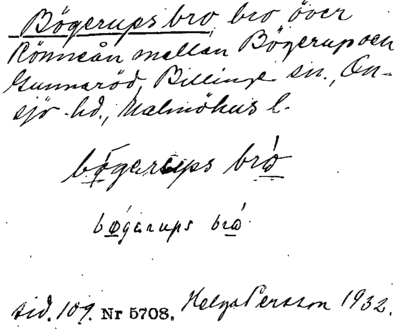 Bögerups bro, bro över
Rönneån mellan Bögerup och
Gunnaröd, Billinge sn., On-
sjö hd., Malmöhus l.
bögerups bro
bøgarups bro
sid. 109. Nr 5708. Helga Persson 1932.